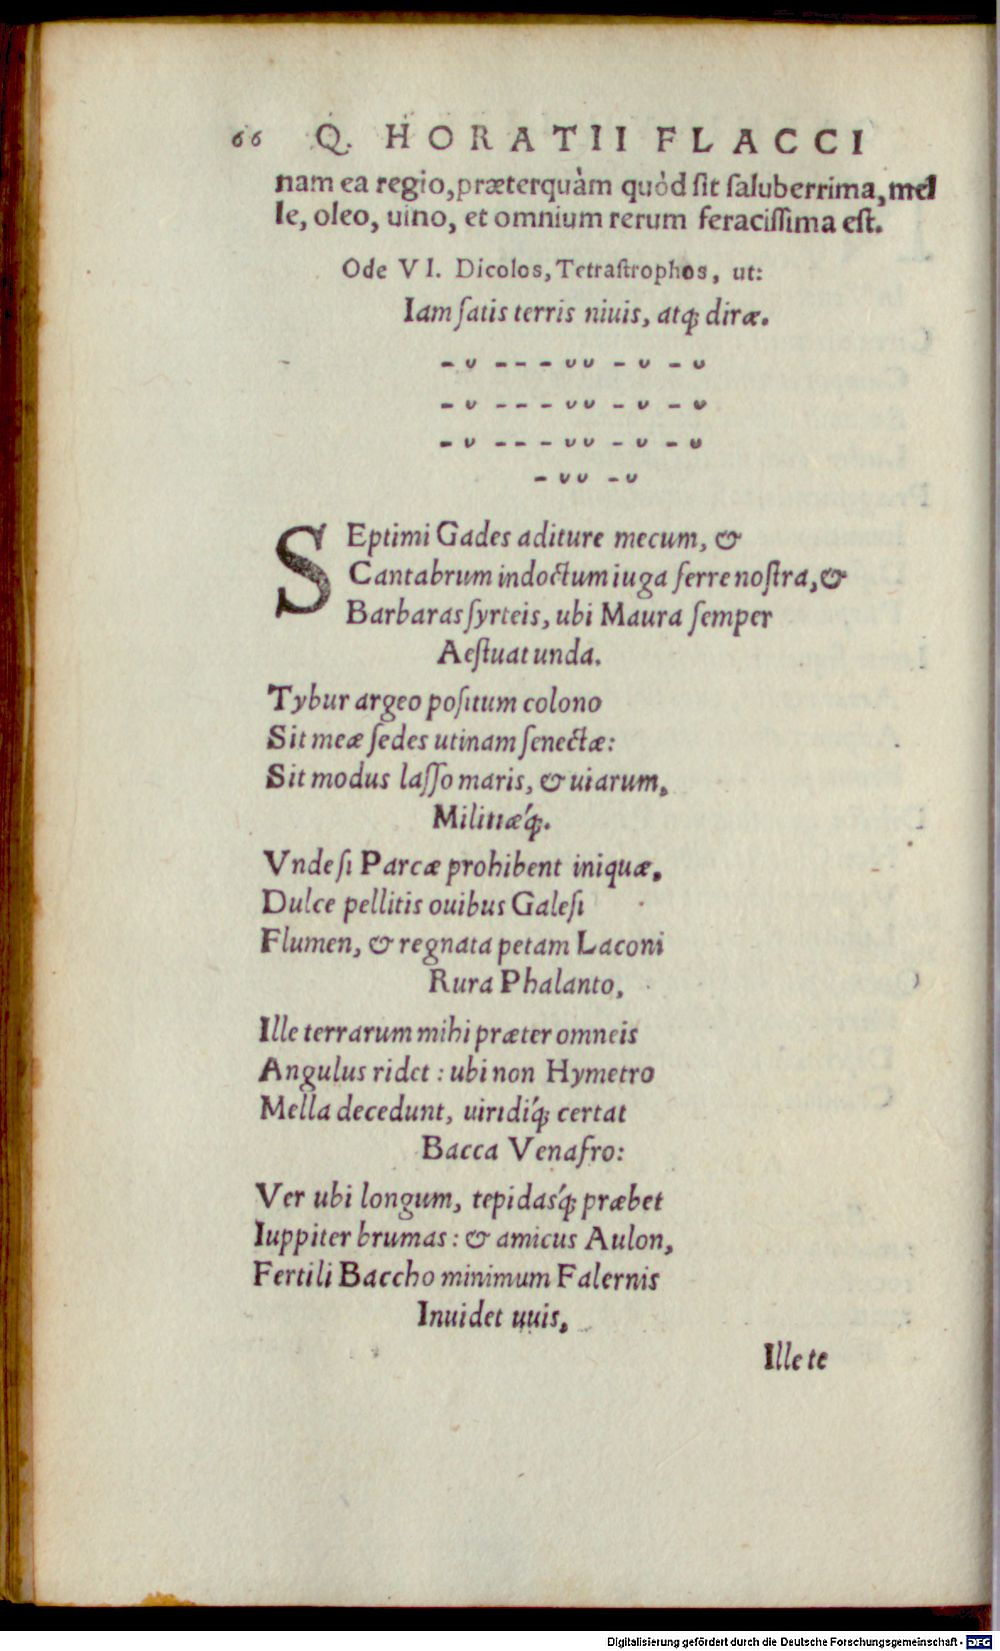 66 Q. HORATII FLACCI
nam ea regio, præterquàm quòd sit saluberrima, mel
le, oleo, uino, et omnium rerum feracissima est.
Ode VI. Dicolos, Tetrastrophos, ut:
Iam satis terris niuis, atq; diræ.
– ᴗ – – – ᴗ ᴗ – ᴗ – ᴗ
– ᴗ – – – ᴗ ᴗ – ᴗ – ᴗ
– ᴗ – – – ᴗ ᴗ – ᴗ – ᴗ
– ᴗ ᴗ – ᴗ
SEptimi Gades aditure mecum, &
Cantabrum indoctum iuga ferre nostra, &
Barbaras syrteis, ubi Maura semper
Aestuat unda.
Tybur argeo positum colono
Sit meæ sedes utinam senectæ:
Sit modus lasso maris, & uiarum,
Militiæq́;.
Vnde si Parcæ prohibent iniquæ,
Dulce pellitis ouibus Galesi
Flumen, & regnata petam Laconi
Rura Phalanto,
Ille terrarum mihi præter omneis
Angulus ridet: ubi non Hymetro
Mella decedunt, uiridiq́; certat
Bacca Venafro:
Ver ubi longum, tepidasq́; præbet
Iuppiter brumas: & amicus Aulon,
Fertili Baccho minimum Falernis
Inuidet uuis,
Ille te
Digitalisierung gefördert durch die Deutsche Forschungsgemeinschaft - DFG